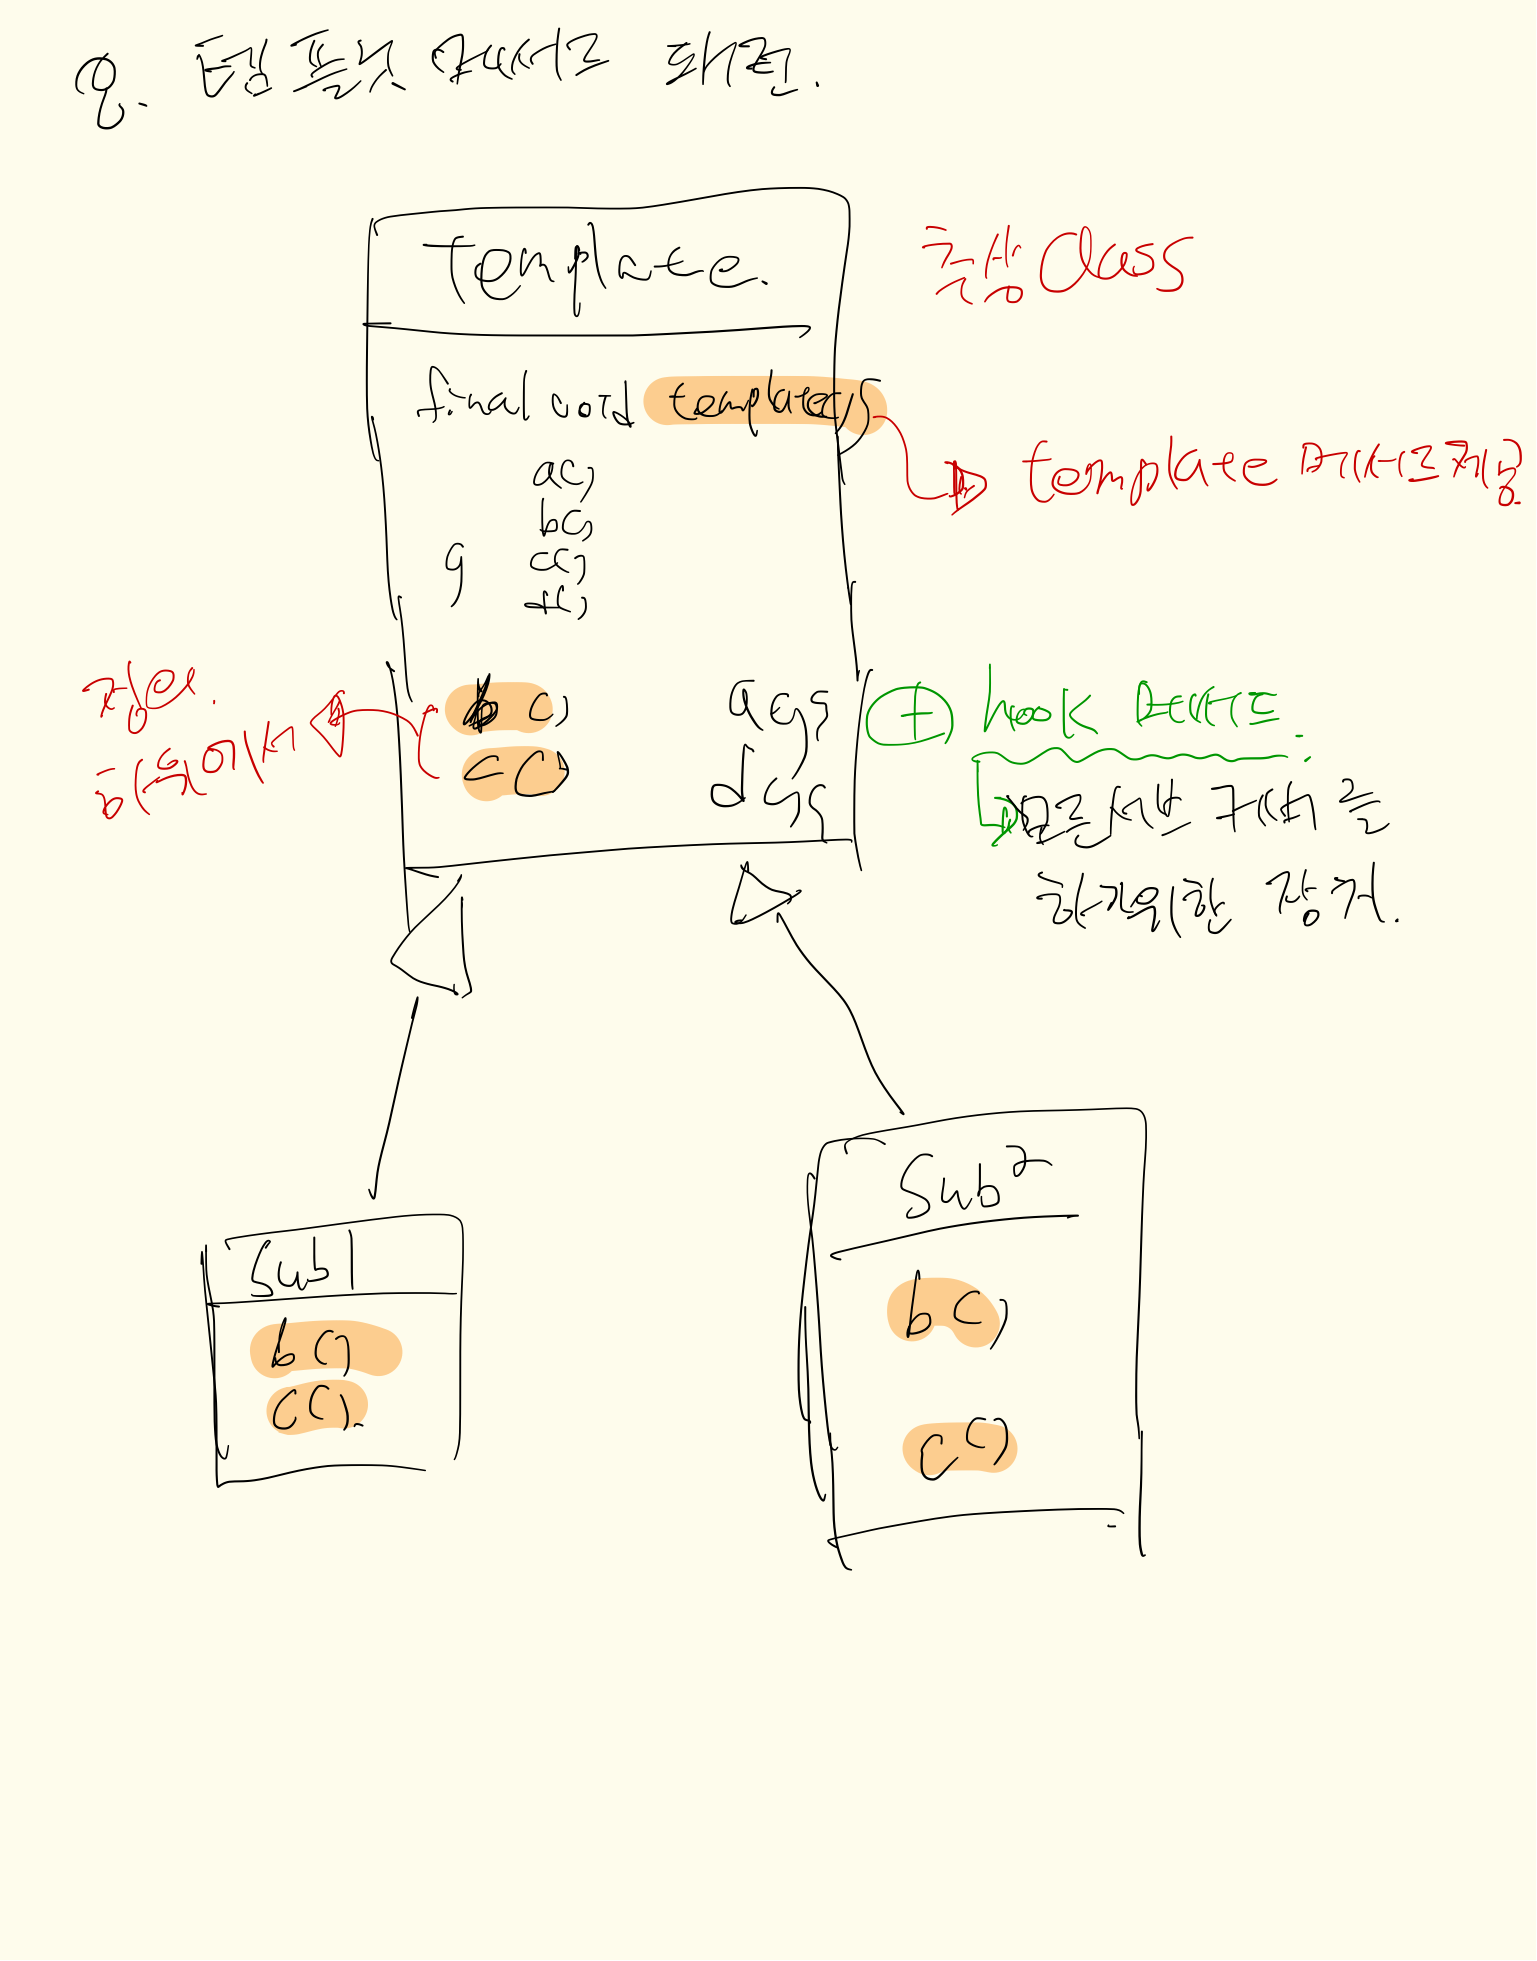 Q. 템플릿 메서드 패턴.
Template.
추상 Class
final void template() {
a()
b()
c()
d()
}
template 메서드 제공
b()
c()
정의.
하위에서
a(){}
d(){}
+ hook 메서드.
모든 서브 구현
하기위한 장치.
Sub1
b()
c().
Sub2
b()
c()